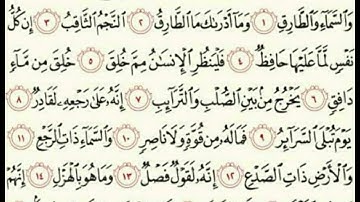 وَٱلسَّمَآءِ وَٱلطَّارِقِ ١ وَمَآ أَدْرَىٰكَ مَا ٱلطَّارِقُ ٢ ٱلنَّجْمُ ٱلثَّاقِبُ ٣ إِن كُلُّ
نَفْسٍ لَّمَّا عَلَيْهَا حَافِظٌ ٤ فَلْيَنظُرِ ٱلْإِنسَٰنُ مِمَّ خُلِقَ ٥ خُلِقَ مِن مَّآءٍ
دَافِقٍ ٦ يَخْرُجُ مِنۢ بَيْنِ ٱلصُّلْبِ وَٱلتَّرَآئِبِ ٧ إِنَّهُۥ عَلَىٰ رَجْعِهِۦ لَقَادِرٌ ٨
يَوْمَ تُبْلَى ٱلسَّرَآئِرُ ٩ فَمَا لَهُۥ مِن قُوَّةٍ وَلَا نَاصِرٍ ١٠ وَٱلسَّمَآءِ ذَاتِ ٱلرَّجْعِ ١١
وَٱلْأَرْضِ ذَاتِ ٱلصَّدْعِ ١٢ إِنَّهُۥ لَقَوْلٌ فَصْلٌ ١٣ وَمَا هُوَ بِٱلْهَزْلِ ١٤ إِنَّهُمْ